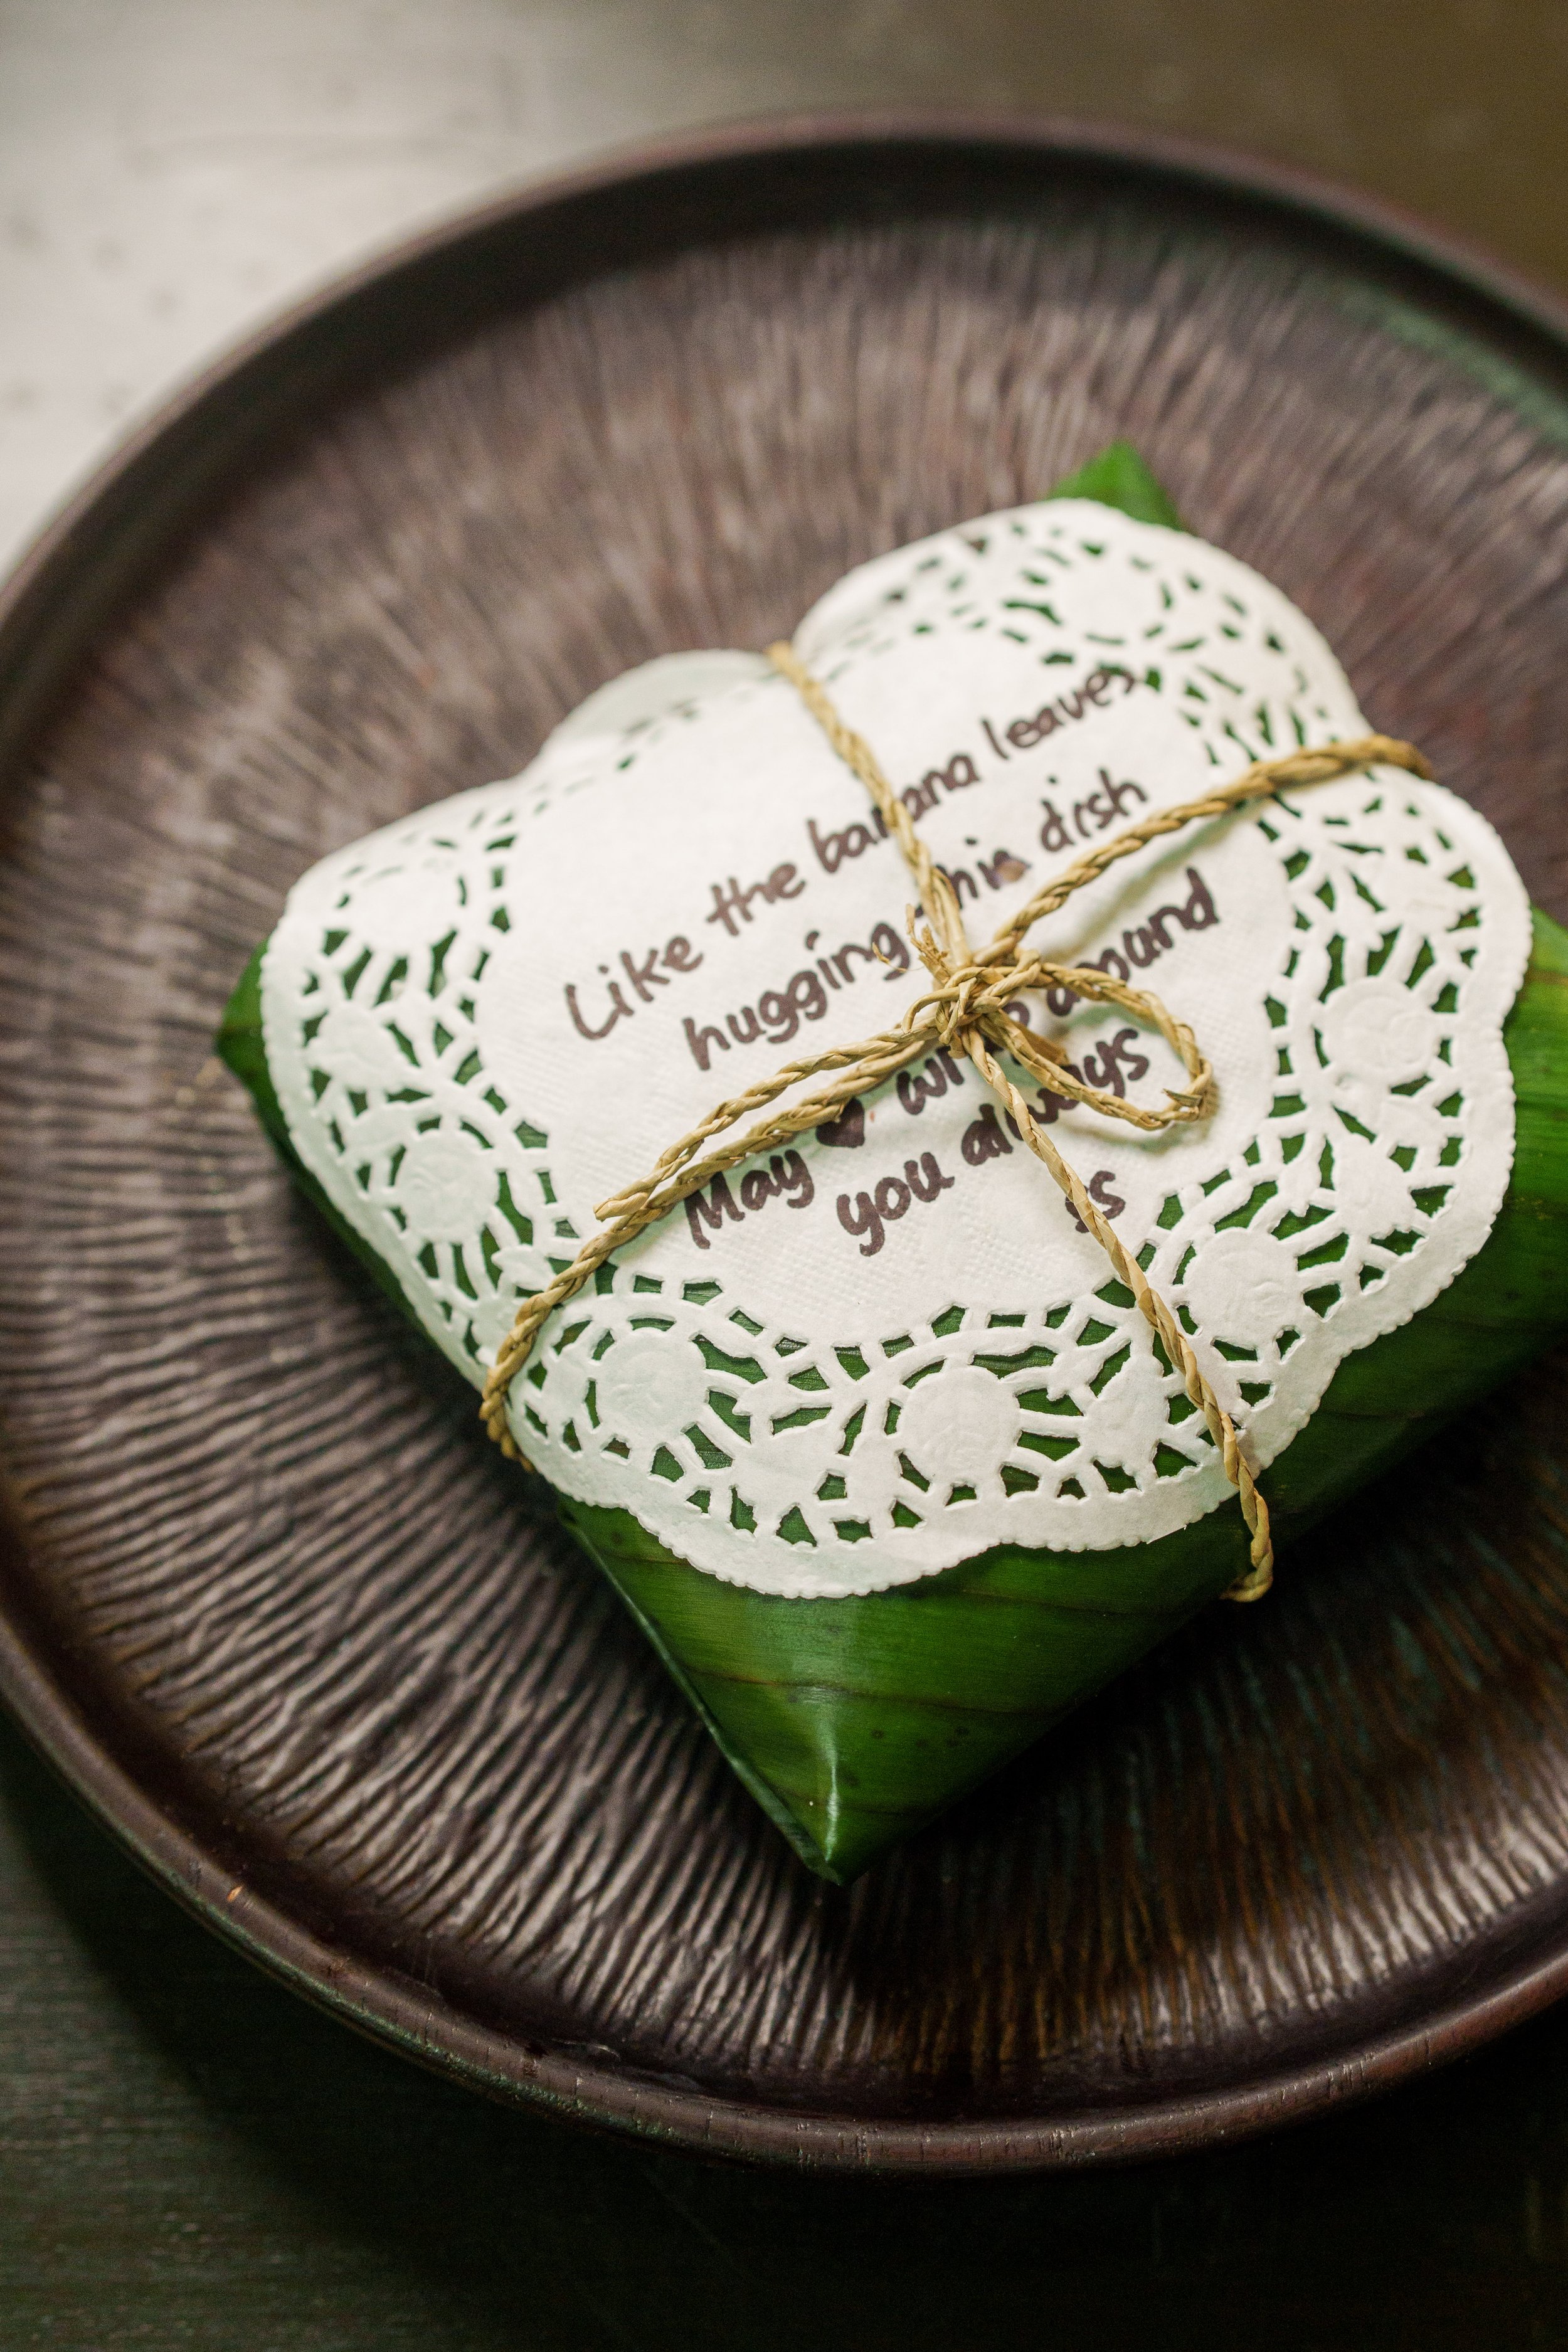 Like the banana leaves
hugging dish
May ♥ around
you always